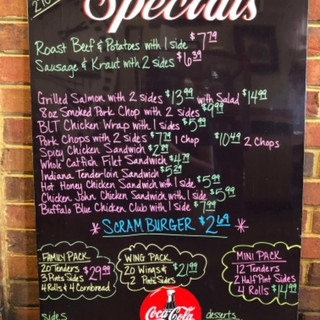 210
Specials
Roast Beef & Potatoes with 1 side $7.79
Sausage & Kraut with 2 sides $6.39
Grilled Salmon with 2 sides $13.99 with Salad $14.99
8oz Smoked Pork Chop with 2 sides $9.99
BLT Chicken Wrap with 1 side $5.99
Pork Chops with 2 sides $7.99 1 Chop $10.49 2 Chops
Spicy Chicken Sandwich $2.89
Whole Catfish Filet Sandwich $4.79
Indiana Tenderloin Sandwich $5.29
Hot Honey Chicken Sandwich with 1 side $5.99
Chicken John Chicken Sandwich with 1 side $5.99
Buffalo Blue Chicken Club with 1 side $7.99
* SCRAM BURGER $2.69 *
FAMILY PACK
20 Tenders
3 Pint Sides $29.99
4 Rolls & 4 Cornbread
WING PACK
20 Wings & $21.99
2 Pint Sides
MINI PACK
12 Tenders
2 Half Pint Sides
4 Rolls $14.99
Coca-Cola
sides
desserts